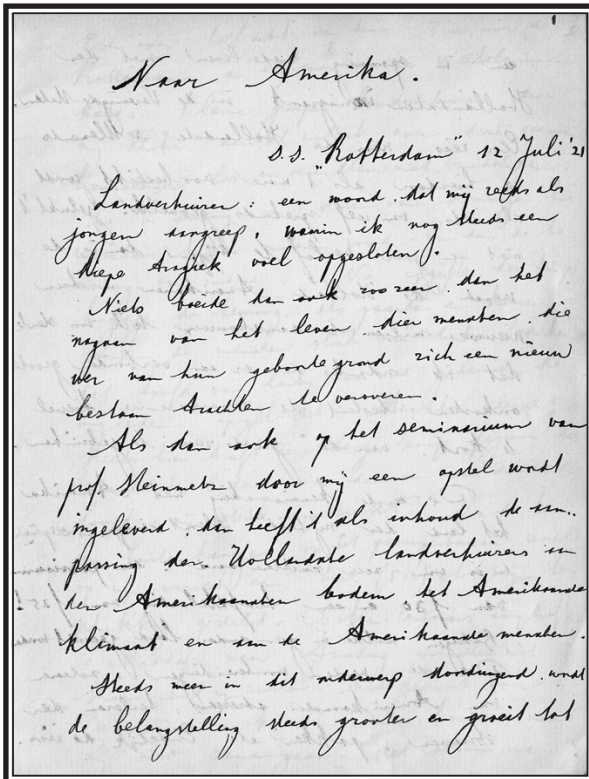 1
Naar Amerika.
s.s. "Rotterdam" 12 Juli '21
Landverhuizer: een woord, dat mij reeds als
jongen aangreep, waarin ik nog steeds een
diepe tragiek voel opgesloten.
Niets boeide dan ook zoo zeer, dan het
nagaan van het leven dier menschen, die
ver van hun geboortegrond zich een nieuw
bestaan trachten te veroveren.
Als dan ook op het seminarium van
prof. Steinmetz door mij een opstel wordt
ingeleverd, dan heeft 't als inhoud de aan-
passing der Hollandsche landverhuizers aan
den Amerikaanschen bodem het Amerikaansche
klimaat en aan de Amerikaansche menschen.
Steeds meer in dit onderwerp doordringend, wordt
de belangstelling steeds grooter en groeit tot